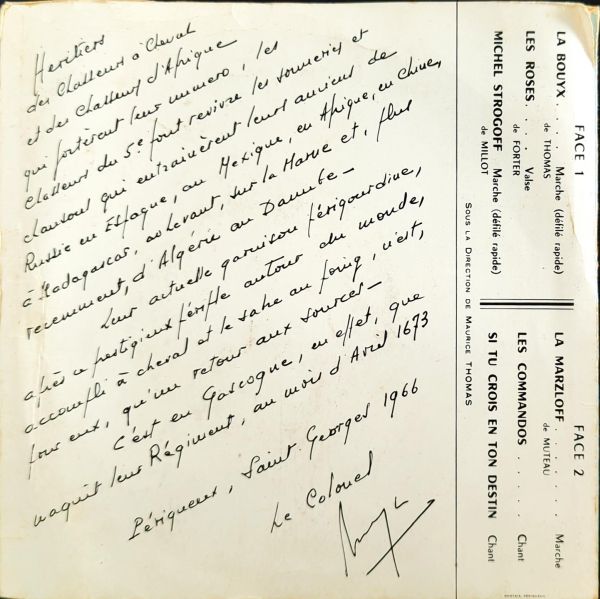 Héritiers
des Chasseurs à Cheval
et des Chasseurs d'Afrique
qui portèrent leur numéro, les
Chasseurs du 5e font revivre les sonneries et
chansons qui entraînèrent leurs anciens de
Russie en Espagne, au Mexique, en Afrique, en Chine,
à Madagascar, au Levant, sur la Marne et, plus
récemment, d'Algérie au Danube -
Leur actuelle garnison périgourdine,
après ce prestigieux périple autour du monde,
accompli à cheval et le sabre au poing, n'est,
pour eux, qu'un retour aux sources -
C'est en Gascogne, en effet, que
naquit leur Régiment, au mois d'Avril 1673
Périgueux, Saint Georges 1966
Le Colonel
FACE 1
LA BOUYX . . . Marche (défilé rapide)
de THOMAS
LES ROSES . . . . Valse
de FORTER
MICHEL STROGOFF Marche (défilé rapide)
de MILLOT
FACE 2
LA MARZLOFF . . . . . Marche
de MUTEAU
LES COMMANDOS . . . . . Chant
SI TU CROIS EN TON DESTIN Chant
SOUS LA DIRECTION DE MAURICE THOMAS